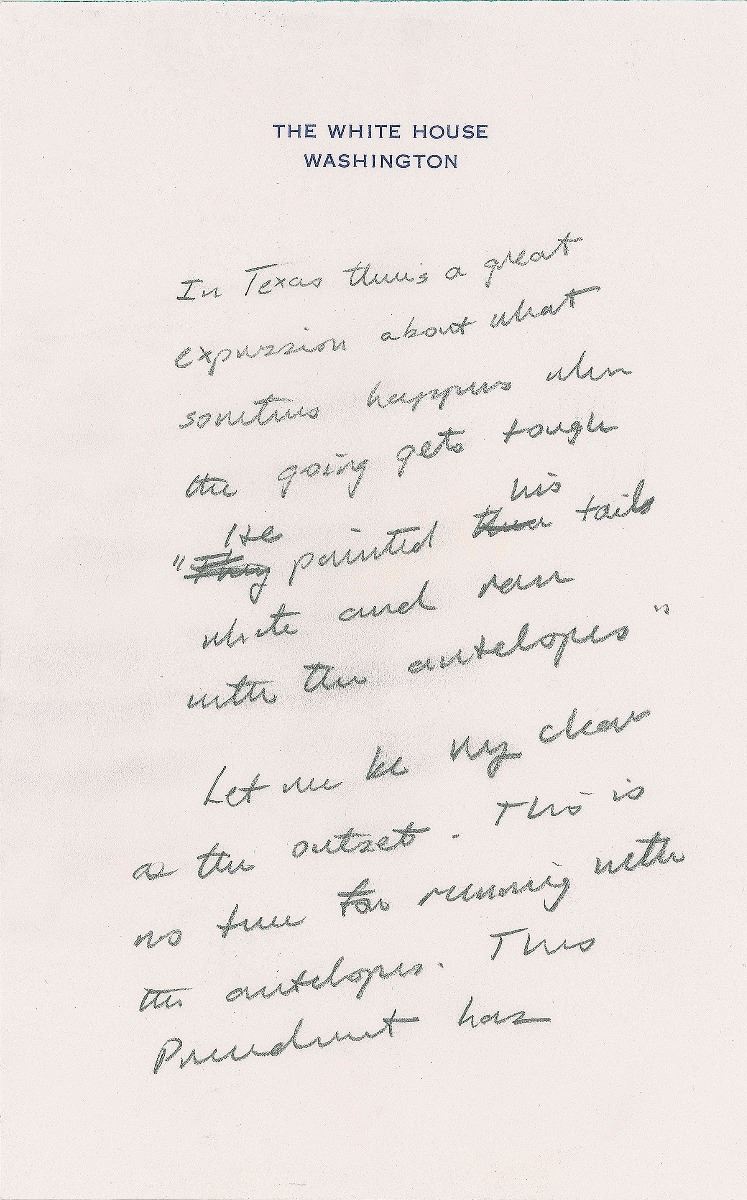 THE WHITE HOUSE
WASHINGTON
In Texas there's a great
expression about what
sometimes happens when
the going gets tough
his
He
"They painted their tails
white and ran
with the antelopes"
Let me be very clear
as the outset. This is
no time for running with
the antelopes. This
President has